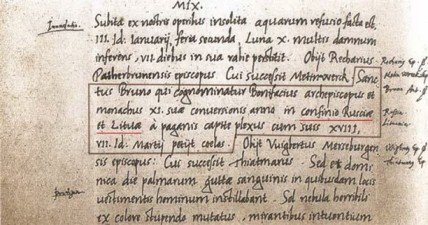 MIX.
Subita ex nostre operibus insolita aquarum refusio facta est
III. Id: Ianuarij, feria secunda, Luna X. multes damnum
inferens, VII. diebus in sua rabie perstitit. Obijt Rechanus
Patherbrunensis episcopus. Cui successit Metinwerck. Sanc
tus Bruno qui cognominatur Bonifacius archepiscopus et
monachus XI. sua conversionis anno in confinio Rusciæ
et Lituæ à paganis capite plexus cum suis XVIII,
VII. Id: Martij petijt coelos. Obijt Vuigbertus Merseburgen
sis episcopus: Cui successit Thiatmarus. Sed et domi
nica die palmarum guttæ sanguinis in quibusdam locis
vestimentis hominum instillabant. Sol nebula horribili
ex colore stupendo mutatus, mirantibus intuentium
Inundatio.
Bruno